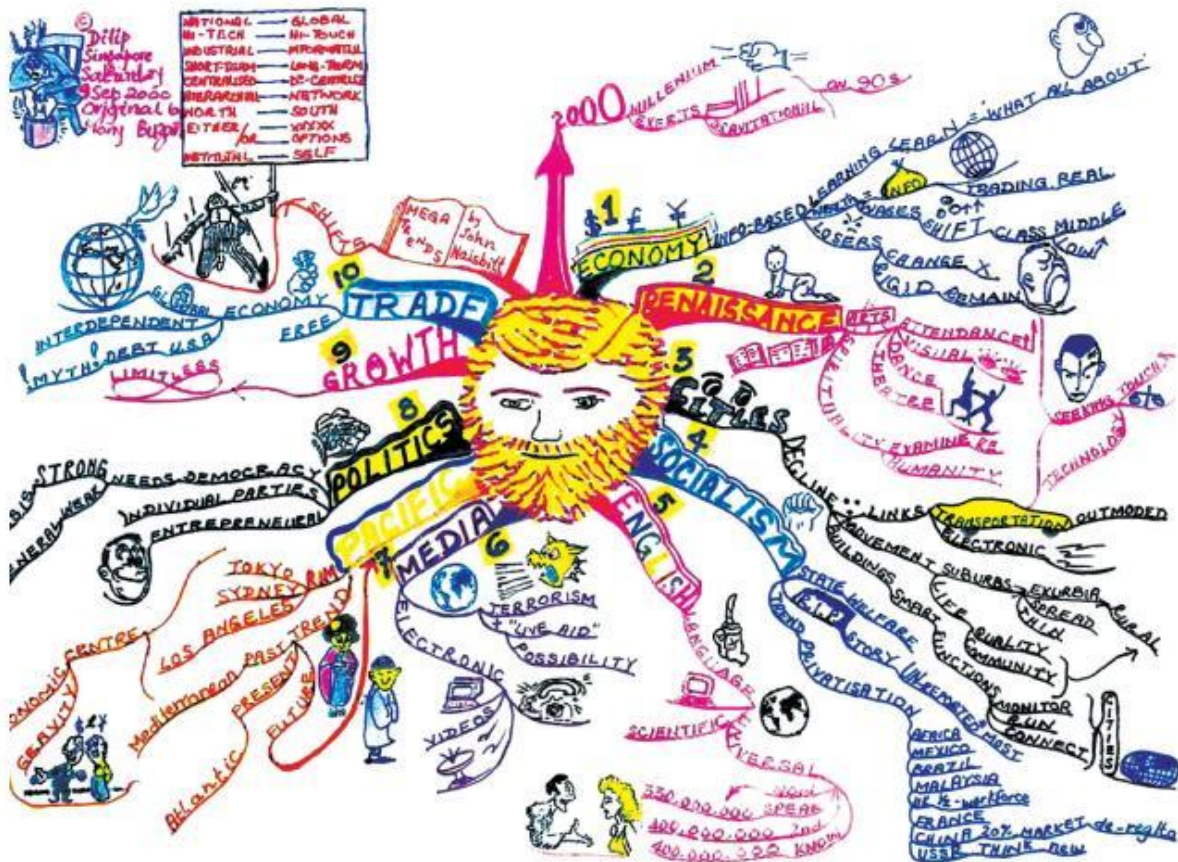 ©
Dilip
Singapore
Saturday
9 Sep 2000
Original by
Tony
NATIONAL — GLOBAL
HI-TECH — HI-TOUCH
INDUSTRIAL —
SHORT-TERM — LONG-TERM
CENTRALISED —
— NETWORK
NORTH — SOUTH
EITHER
/OR OPTIONS
— SELF
SHIFTS
MEGA
TRENDS
by
John
Naisbitt
2000
MILLENIUM
EXERTS
GRAVITATIONAL
ON 90s
1
$ £ ¥
ECONOMY
INFO-BASED
LEARNING LEARN = "WHAT ALL ABOUT"
INFO
TRADING REAL
WAGES SHIFT
CLASS MIDDLE
LOW
LOSERS
CHANGE X
RIGID REMAIN
2
RENAISSANCE
ARTS
ATTENDANCE
VISUAL
DANCE
THEATRE
SPIRITUALITY
EXAMINE RE
HUMANITY
SEEKING
TOUCH
TECHNOLOGY
3
CITIES
DECLINE
LINKS
TRANSPORTATION OUTMODED
ELECTRONIC
MOVEMENT
SUBURBS
EXURBIA
RURAL
SPREAD
THIN
LIFE
QUALITY
COMMUNITY
BUILDINGS SMART
FUNCTIONS
MONITOR
RUN
CONNECT
CITIES
4
SOCIALISM
STATE WELFARE
R.I.P
STORY UNREPORTED MOST
TREND
PRIVATISATION
AFRICA
MEXICO
BRAZIL
MALAYSIA
UK ½-workforce
FRANCE
CHINA 20% MARKET
USSR THINK new
5
ENGLISH
LANGUAGE
SCIENTIFIC
UNIVERSAL
350.000.000 SPEAK
400.000.000 2nd
400.000.000 KNOW
6
MEDIA
TERRORISM
+ "LIVE AID"
POSSIBILITY
ELECTRONIC
VIDEOS
7
PACIFIC
RIM
TOKYO
SYDNEY
LOS ANGELES
CENTRE
GRAVITY
$£¥
TREND
PAST
Mediterranean
PRESENT
Atlantic
FUTURE
8
POLITICS
DEMOCRACY
NEEDS
STRONG
WEAK
INDIVIDIAL PARTIES
ENTREPRENEURAL
9
GROWTH
LIMITLESS
10
TRADE
FREE
ECONOMY
GLOBAL
INTERDEPENDENT
DEBT U.S.A
MYTH!